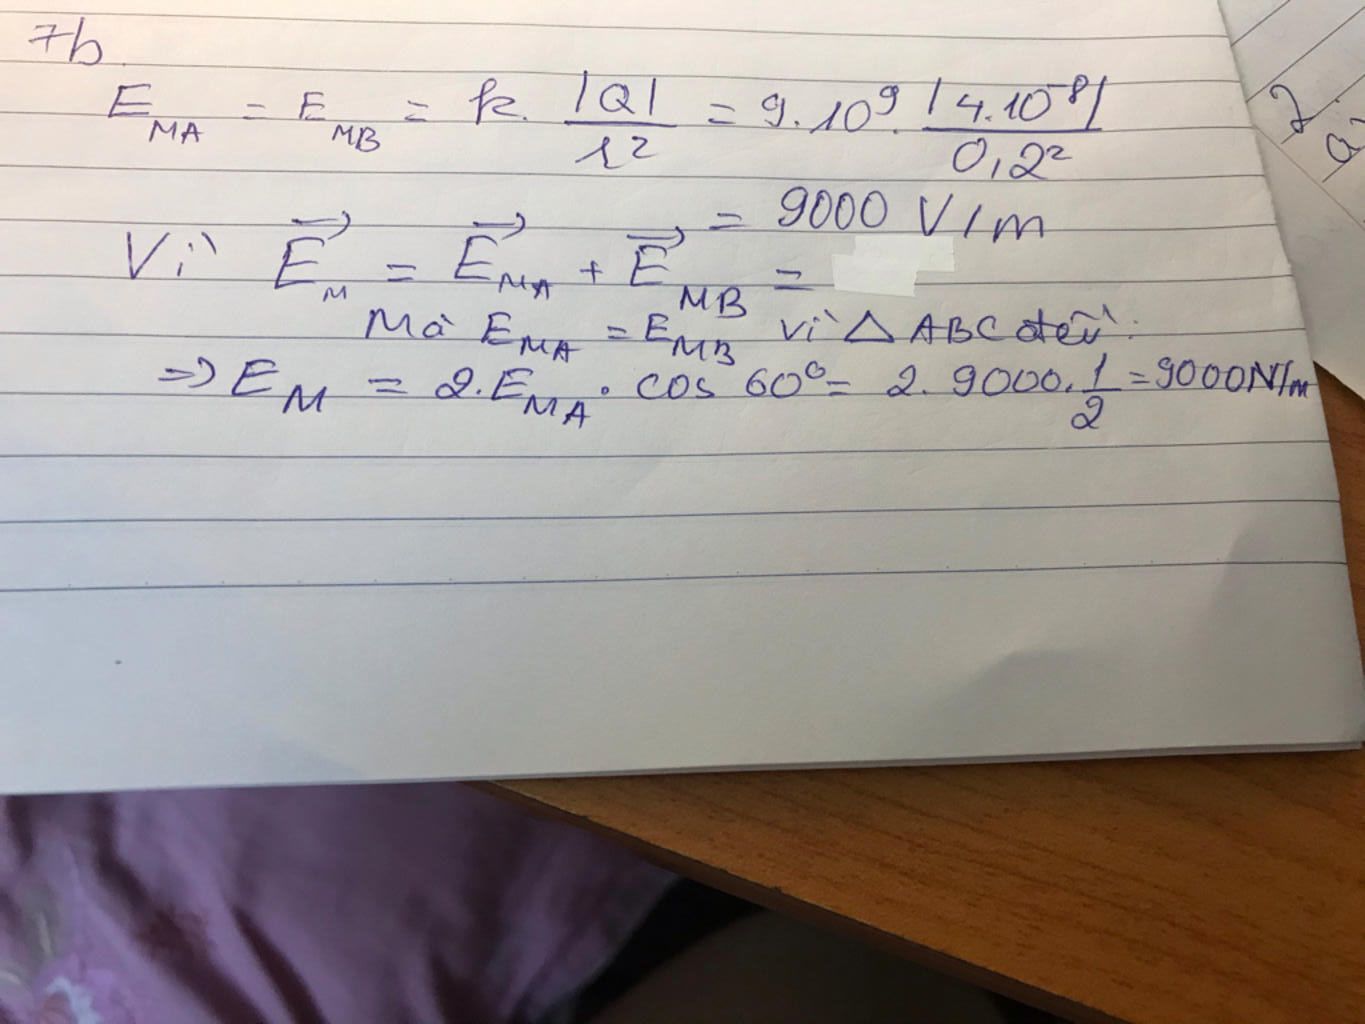 7b
E_MA = E_MB = k. |Q| / r² = 9.10⁹. |4.10⁻⁸| / 0,2²
= 9000 V/m
Vì E⃗_M = E⃗_MA + E⃗_MB =
Mà E_MA = E_MB vì △ ABC đều.
=> E_M = 2.E_MA. cos 60° = 2. 9000. 1/2 = 9000N/m
2
a,